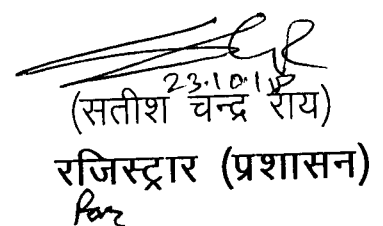 23.10.1
(सतीश चन्द्र राय)
रजिस्ट्रार (प्रशासन)